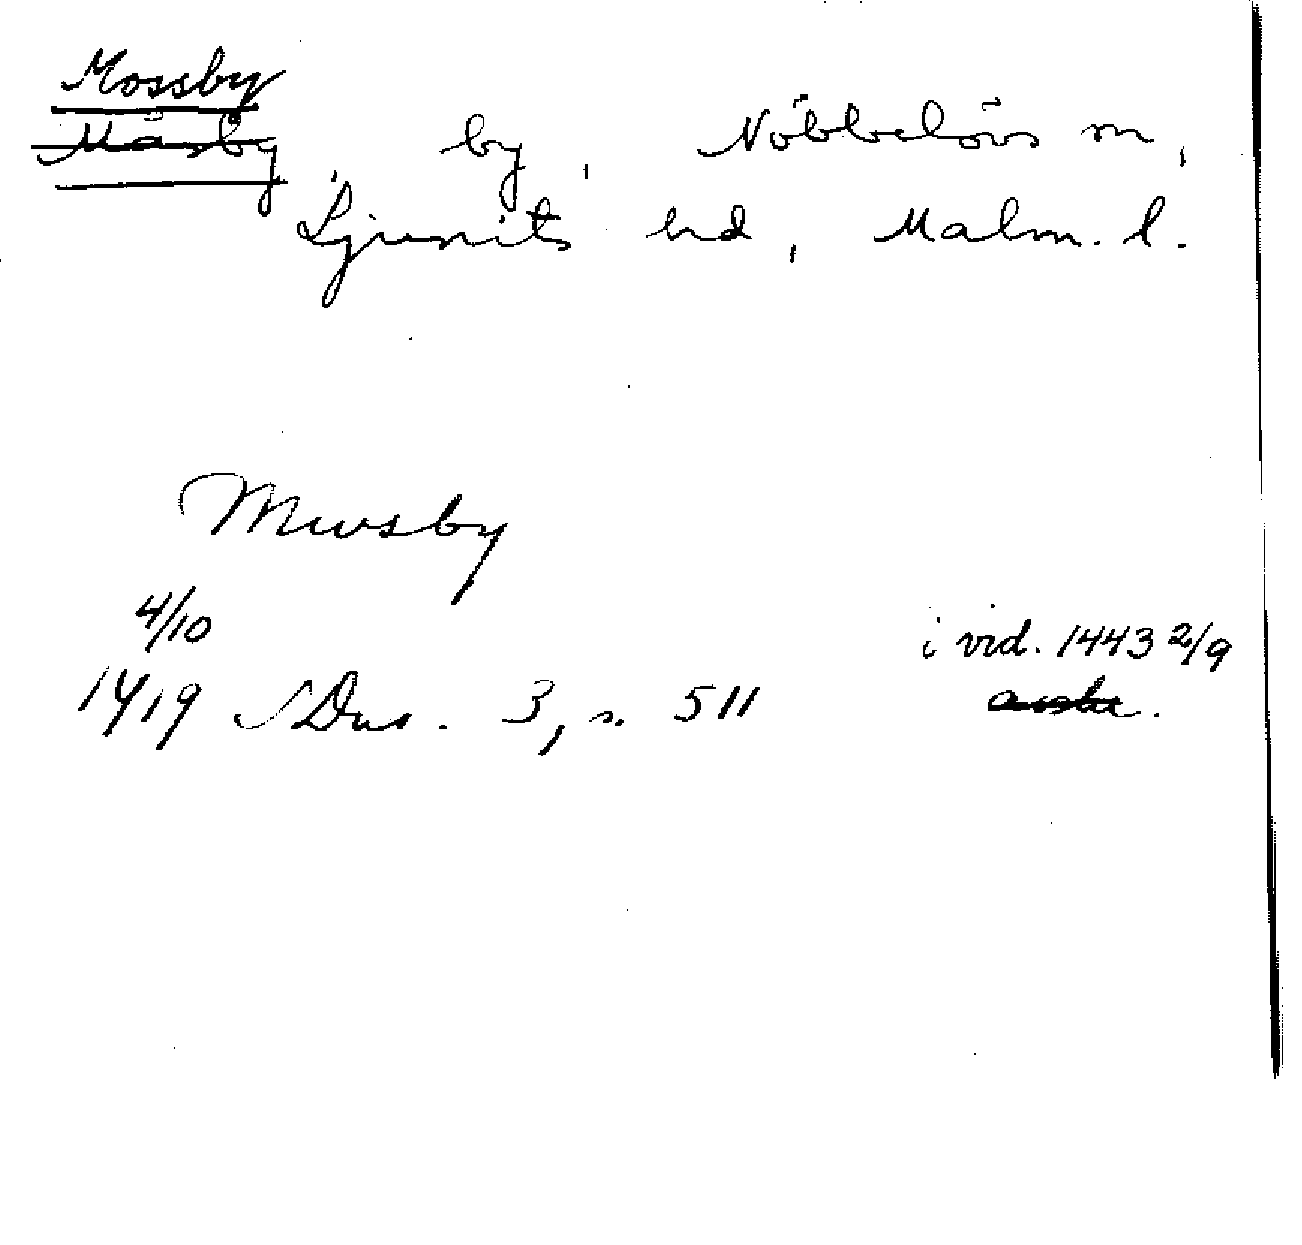 Mossby
Måsby, by, Nöbbelövs sn,
Ljunits hd, Malm. l.
Mwsby
4/10 i vid. 1443 2/9
1419 SDns. 3, s. 511